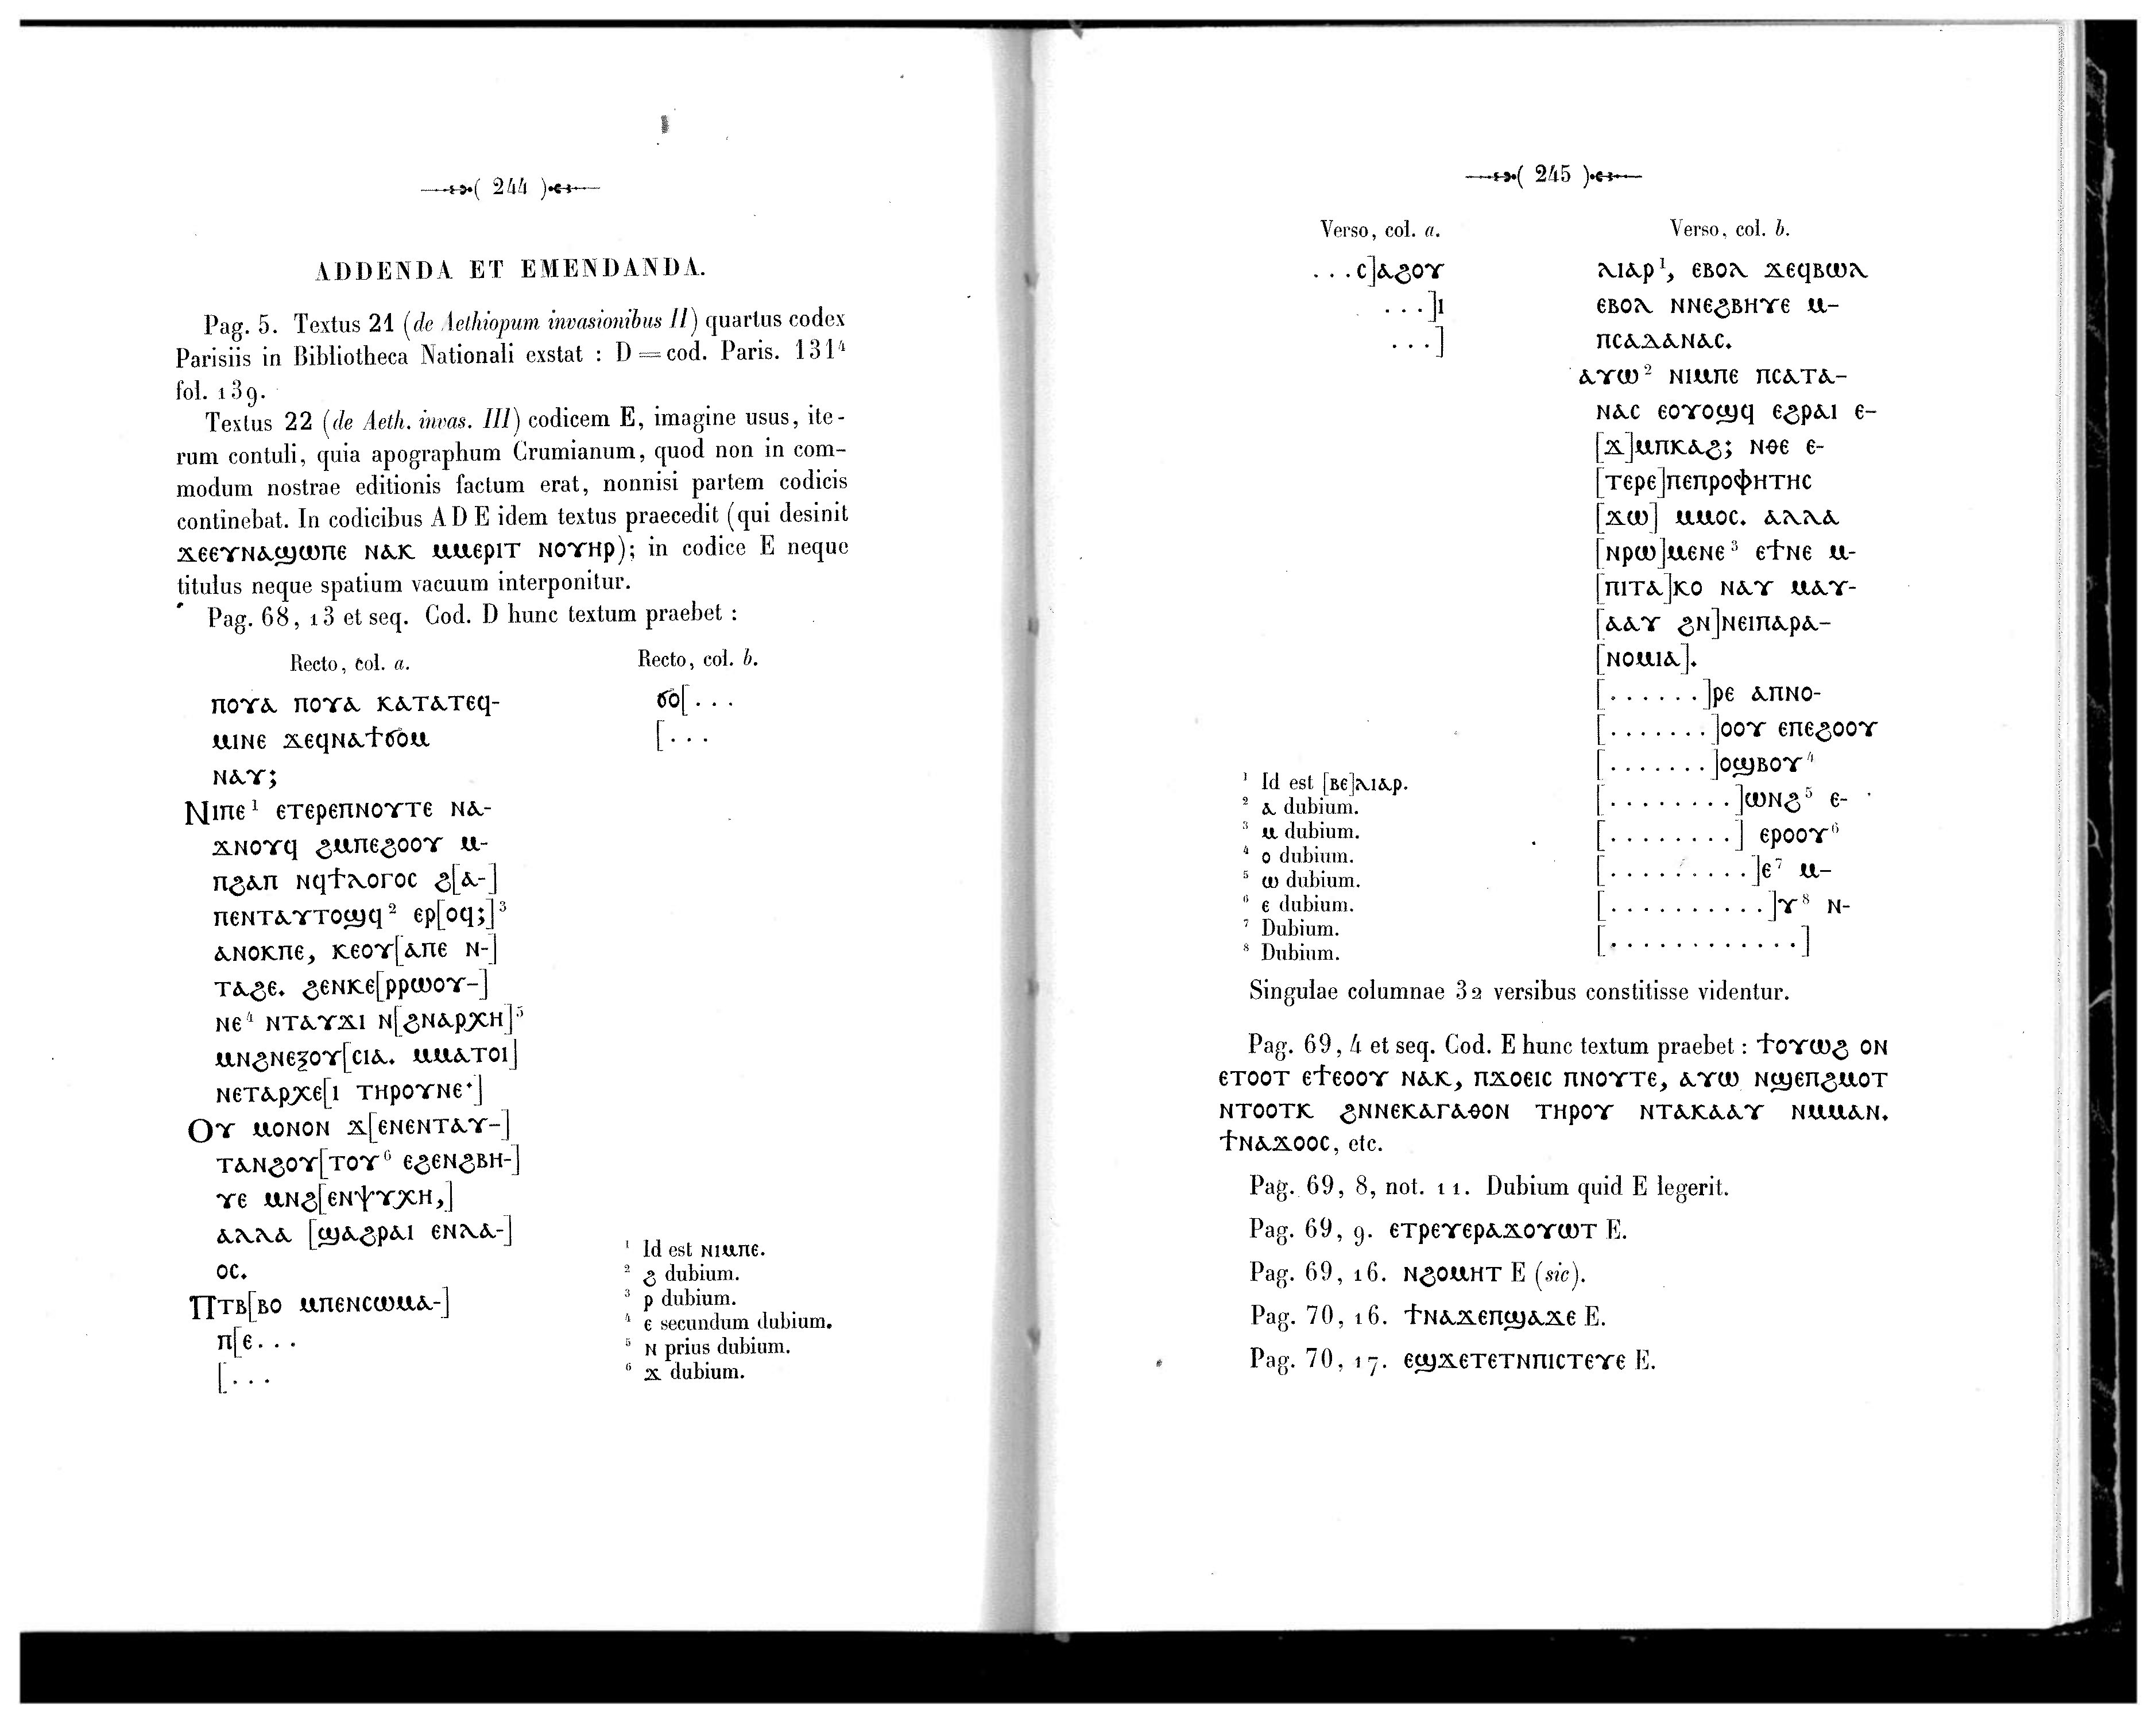 ( 244 )
ADDENDA ET EMENDANDA.
Pag. 5. Textus 21 (de Aethiopum invasionibus II) quartus codex
Parisiis in Bibliotheca Nationali exstat : D = cod. Paris. 131⁴
fol. 139.
Textus 22 (de Aeth. invas. III) codicem E, imagine usus, ite-
rum contuli, quia apographum Crumianum, quod non in com-
modum nostrae editionis factum erat, nonnisi partem codicis
continebat. In codicibus A D E idem textus praecedit (qui desinit
ϫⲉⲉⲩⲛⲁϣⲱⲡⲉ ⲛⲁⲕ ⲙⲙⲉⲣⲓⲧ ⲛⲟⲩⲏⲣ); in codice E neque
titulus neque spatium vacuum interponitur.
Pag. 68, 13 et seq. Cod. D hunc textum praebet :
Recto, col. a.
ⲡⲟⲩⲁ ⲡⲟⲩⲁ ⲕⲁⲧⲁⲧⲉϥ-
ⲙⲓⲛⲉ ϫⲉϥⲛⲁϯϭⲟⲙ
ⲛⲁⲩ;
Ⲛⲓⲡⲉ¹ ⲉⲧⲉⲣⲉⲡⲛⲟⲩⲧⲉ ⲛⲁ-
ϫⲛⲟⲩϥ ϩⲙⲡⲉϩⲟⲟⲩ ⲙ-
ⲡϩⲁⲡ ⲛϥϯⲗⲟⲅⲟⲥ ϩ[ⲁ-]
ⲡⲉⲛⲧⲁⲩⲧⲟϣϥ² ⲉⲣ[ⲟϥ;]³
ⲁⲛⲟⲕⲡⲉ, ⲕⲉⲟⲩ[ⲁⲡⲉ ⲛ-]
ⲧⲁϩⲉ. ϩⲉⲛⲕⲉ[ⲣⲣⲱⲟⲩ-]
ⲛⲉ⁴ ⲛⲧⲁⲩϫⲓ ⲛ[ϩⲛⲁⲣⲭⲏ]⁵
ⲙⲛϩⲛⲉⲝⲟⲩ[ⲥⲓⲁ. ⲙⲙⲁⲧⲟⲓ]
ⲛⲉⲧⲁⲣⲭⲉ[ⲓ ⲧⲏⲣⲟⲩⲛⲉ·]
Ⲟⲩ ⲙⲟⲛⲟⲛ ϫ[ⲉⲛⲉⲛⲧⲁⲩ-]
ⲧⲁⲛϩⲟⲩ[ⲧⲟⲩ⁶ ⲉϩⲉⲛϩⲃⲏ-]
ⲩⲉ ⲙⲛϩ[ⲉⲛⲯⲩⲭⲏ,]
ⲁⲗⲗⲁ [ϣⲁϩⲣⲁⲓ ⲉⲛⲗⲁ-]
ⲟⲥ.
Ⲡⲧⲃ[ⲃⲟ ⲙⲡⲉⲛⲥⲱⲙⲁ-]
ⲡ[ⲉ...
[...
Recto, col. b.
ϭⲟ[...
[...
¹ Id est ⲛⲓⲙⲡⲉ.
² ϩ dubium.
³ ⲣ dubium.
⁴ ⲉ secundum dubium.
⁵ ⲛ prius dubium.
⁶ ϫ dubium.
( 245 )
Verso, col. a.
...ⲥ]ⲁϩⲟⲩ
...]ⲓ
...]
Verso, col. b.
ⲗⲓⲁⲣ¹, ⲉⲃⲟⲗ ϫⲉϥⲃⲱⲗ
ⲉⲃⲟⲗ ⲛⲛⲉϩⲃⲏⲩⲉ ⲙ-
ⲡⲥⲁⲇⲁⲛⲁⲥ.
ⲁⲩⲱ² ⲛⲓⲙⲡⲉ ⲡⲥⲁⲧⲁ-
ⲛⲁⲥ ⲉⲟⲩⲟϣϥ ⲉϩⲣⲁⲓ ⲉ-
[ϫ]ⲙⲡⲕⲁϩ; ⲛⲑⲉ ⲉ-
[ⲧⲉⲣⲉ]ⲡⲉⲡⲣⲟⲫⲏⲧⲏⲥ
[ϫⲱ] ⲙⲙⲟⲥ. ⲁⲗⲗⲁ
[ⲛⲣⲱ]ⲙⲉⲛⲉ³ ⲉϯⲛⲉ ⲙ-
[ⲡⲓⲧⲁ]ⲕⲟ ⲛⲁⲩ ⲙⲁⲩ-
[ⲁⲁⲩ ϩⲛ]ⲛⲉⲓⲡⲁⲣⲁ-
[ⲛⲟⲙⲓⲁ].
[......]ⲣⲉ ⲁⲡⲛⲟ-
[.......]ⲟⲟⲩ ⲉⲡⲉϩⲟⲟⲩ
[.......]ⲟϣⲃⲟⲩ⁴
[........]ⲱⲛϩ⁵ ⲉ-
[........] ⲉⲣⲟⲟⲩ⁶
[.........]ⲉ⁷ ⲙ-
[..........]ⲩ⁸ ⲛ-
[............]
¹ Id est [ⲃⲉ]ⲗⲓⲁⲣ.
² ⲁ dubium.
³ ⲙ dubium.
⁴ ⲟ dubium.
⁵ ⲱ dubium.
⁶ ⲉ dubium.
⁷ Dubium.
⁸ Dubium.
Singulae columnae 32 versibus constitisse videntur.
Pag. 69, 4 et seq. Cod. E hunc textum praebet : ϯⲟⲩⲱϩ ⲟⲛ
ⲉⲧⲟⲟⲧ ⲉϯⲉⲟⲟⲩ ⲛⲁⲕ, ⲡϫⲟⲉⲓⲥ ⲡⲛⲟⲩⲧⲉ, ⲁⲩⲱ ⲛϣⲉⲡϩⲙⲟⲧ
ⲛⲧⲟⲟⲧⲕ ϩⲛⲛⲉⲕⲁⲅⲁⲑⲟⲛ ⲧⲏⲣⲟⲩ ⲛⲧⲁⲕⲁⲁⲩ ⲛⲙⲙⲁⲛ.
ϯⲛⲁϫⲟⲟⲥ, etc.
Pag. 69, 8, not. 11. Dubium quid E legerit.
Pag. 69, 9. ⲉⲧⲣⲉⲩⲉⲣⲁϫⲟⲩⲱⲧ E.
Pag. 69, 16. ⲛϩⲟⲙⲏⲧ E (sic).
Pag. 70, 16. ϯⲛⲁϫⲉⲡϣⲁϫⲉ E.
Pag. 70, 17. ⲉϣϫⲉⲧⲉⲧⲛⲡⲓⲥⲧⲉⲩⲉ E.